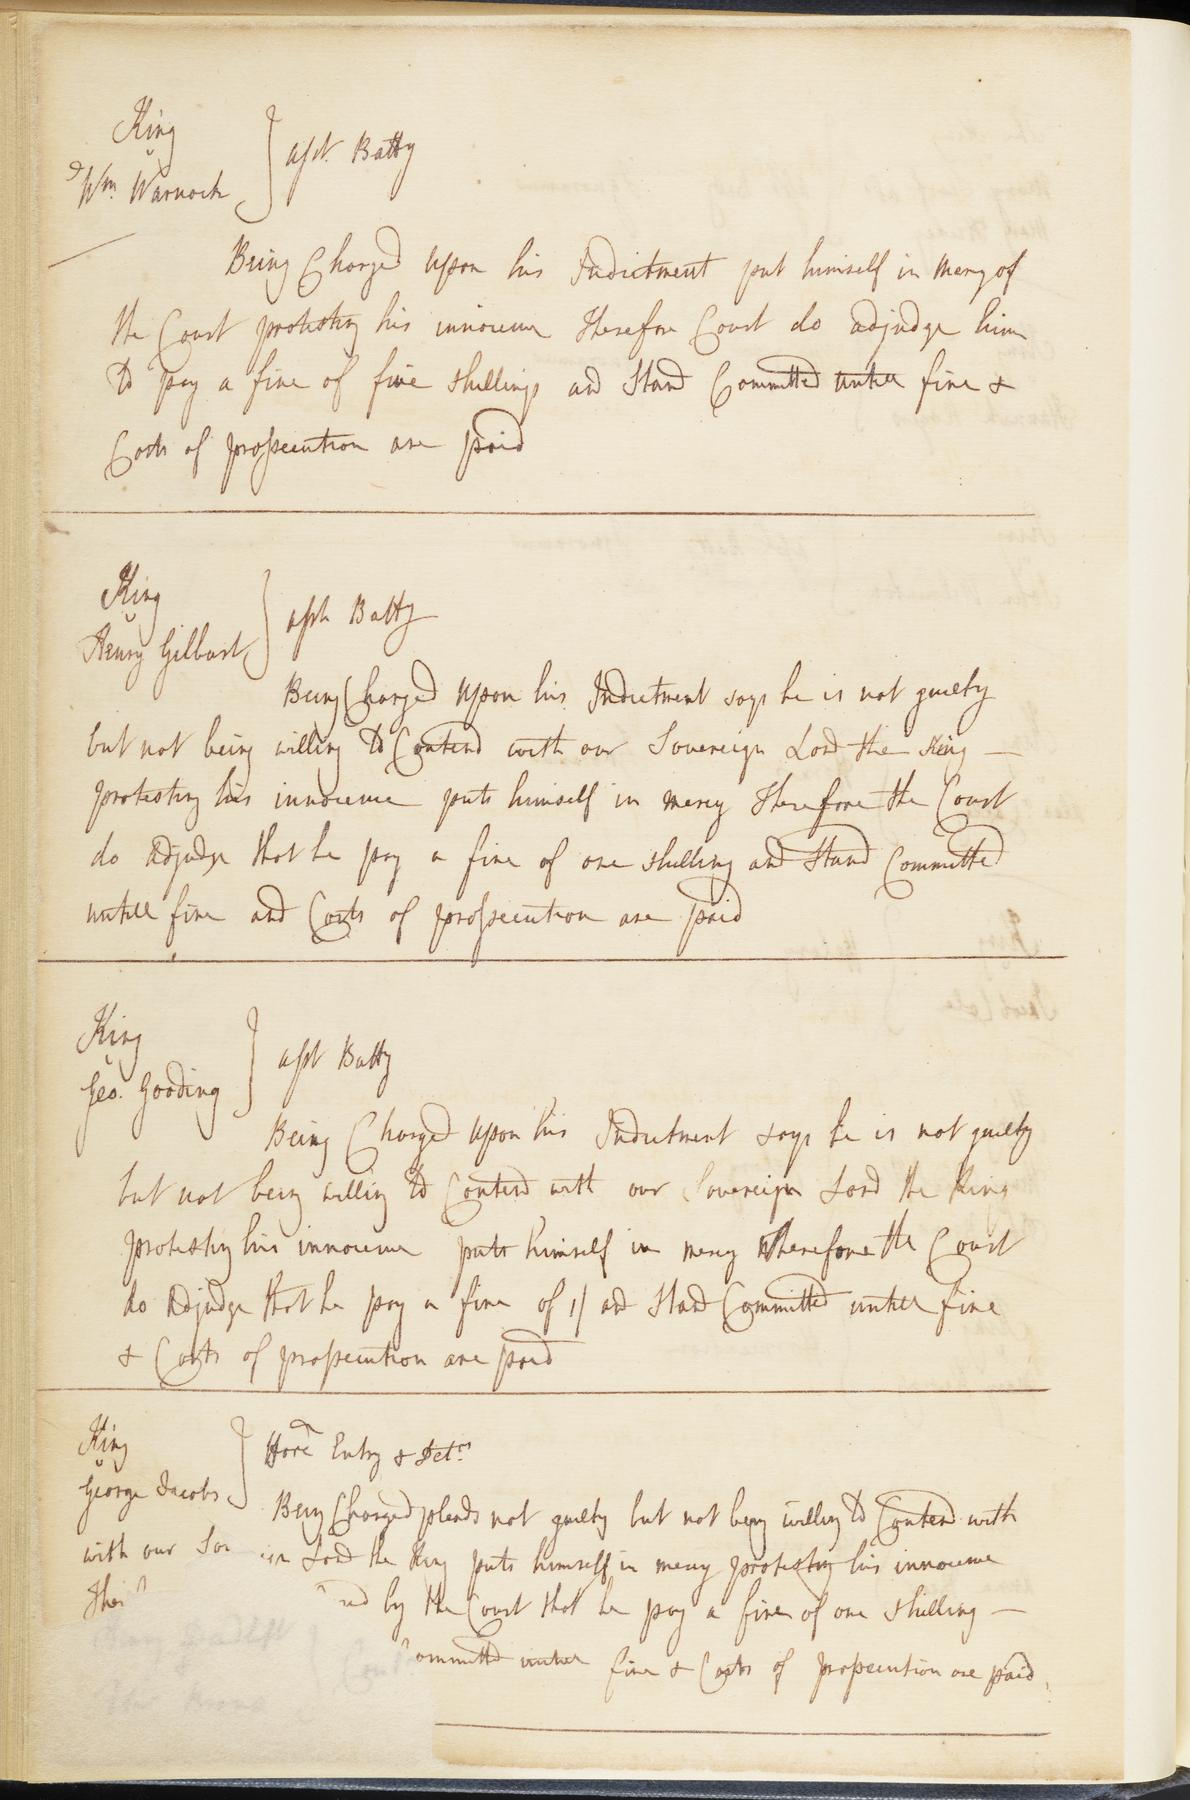 King
v
Wm. Warnock } asst. Batty
Being Charged upon his Indictment put himself in mercy of
the Court protesting his innocence Therefore Court do adjudge him
to pay a fine of five shillings and Stand Committed untill fine &
Costs of prosecution are paid
King
v
Henry Gilbart } asst Batty
Being Charged upon his Indictment says he is not guilty
but not being willing to Contend with our Sovereign Lord the King —
protesting his innocence puts himself in mercy Therefore the Court
do adjudge that he pay a fine of one shilling and Stand Committed
untill fine and Costs of prosecution are paid
King
v
Geo. Gooding } asst Batty
Being Charged upon his Indictment says he is not guilty
but not being willing to Contend with our Sovereign Lord the King
protesting his innocence puts himself in mercy Therefore the Court
do adjudge that he pay a fine of 1/ and Stand Committed untill fine
& Costs of prosecution are paid
King
v
George Jacobs } Entry &
Being Charged pleads not guilty but not being willing to Contend with
with our Lord the King puts himself in mercy protesting his innocence
by the Court that he pay a fine of one shilling —
ommitted untill fine & Costs of prosecution are paid